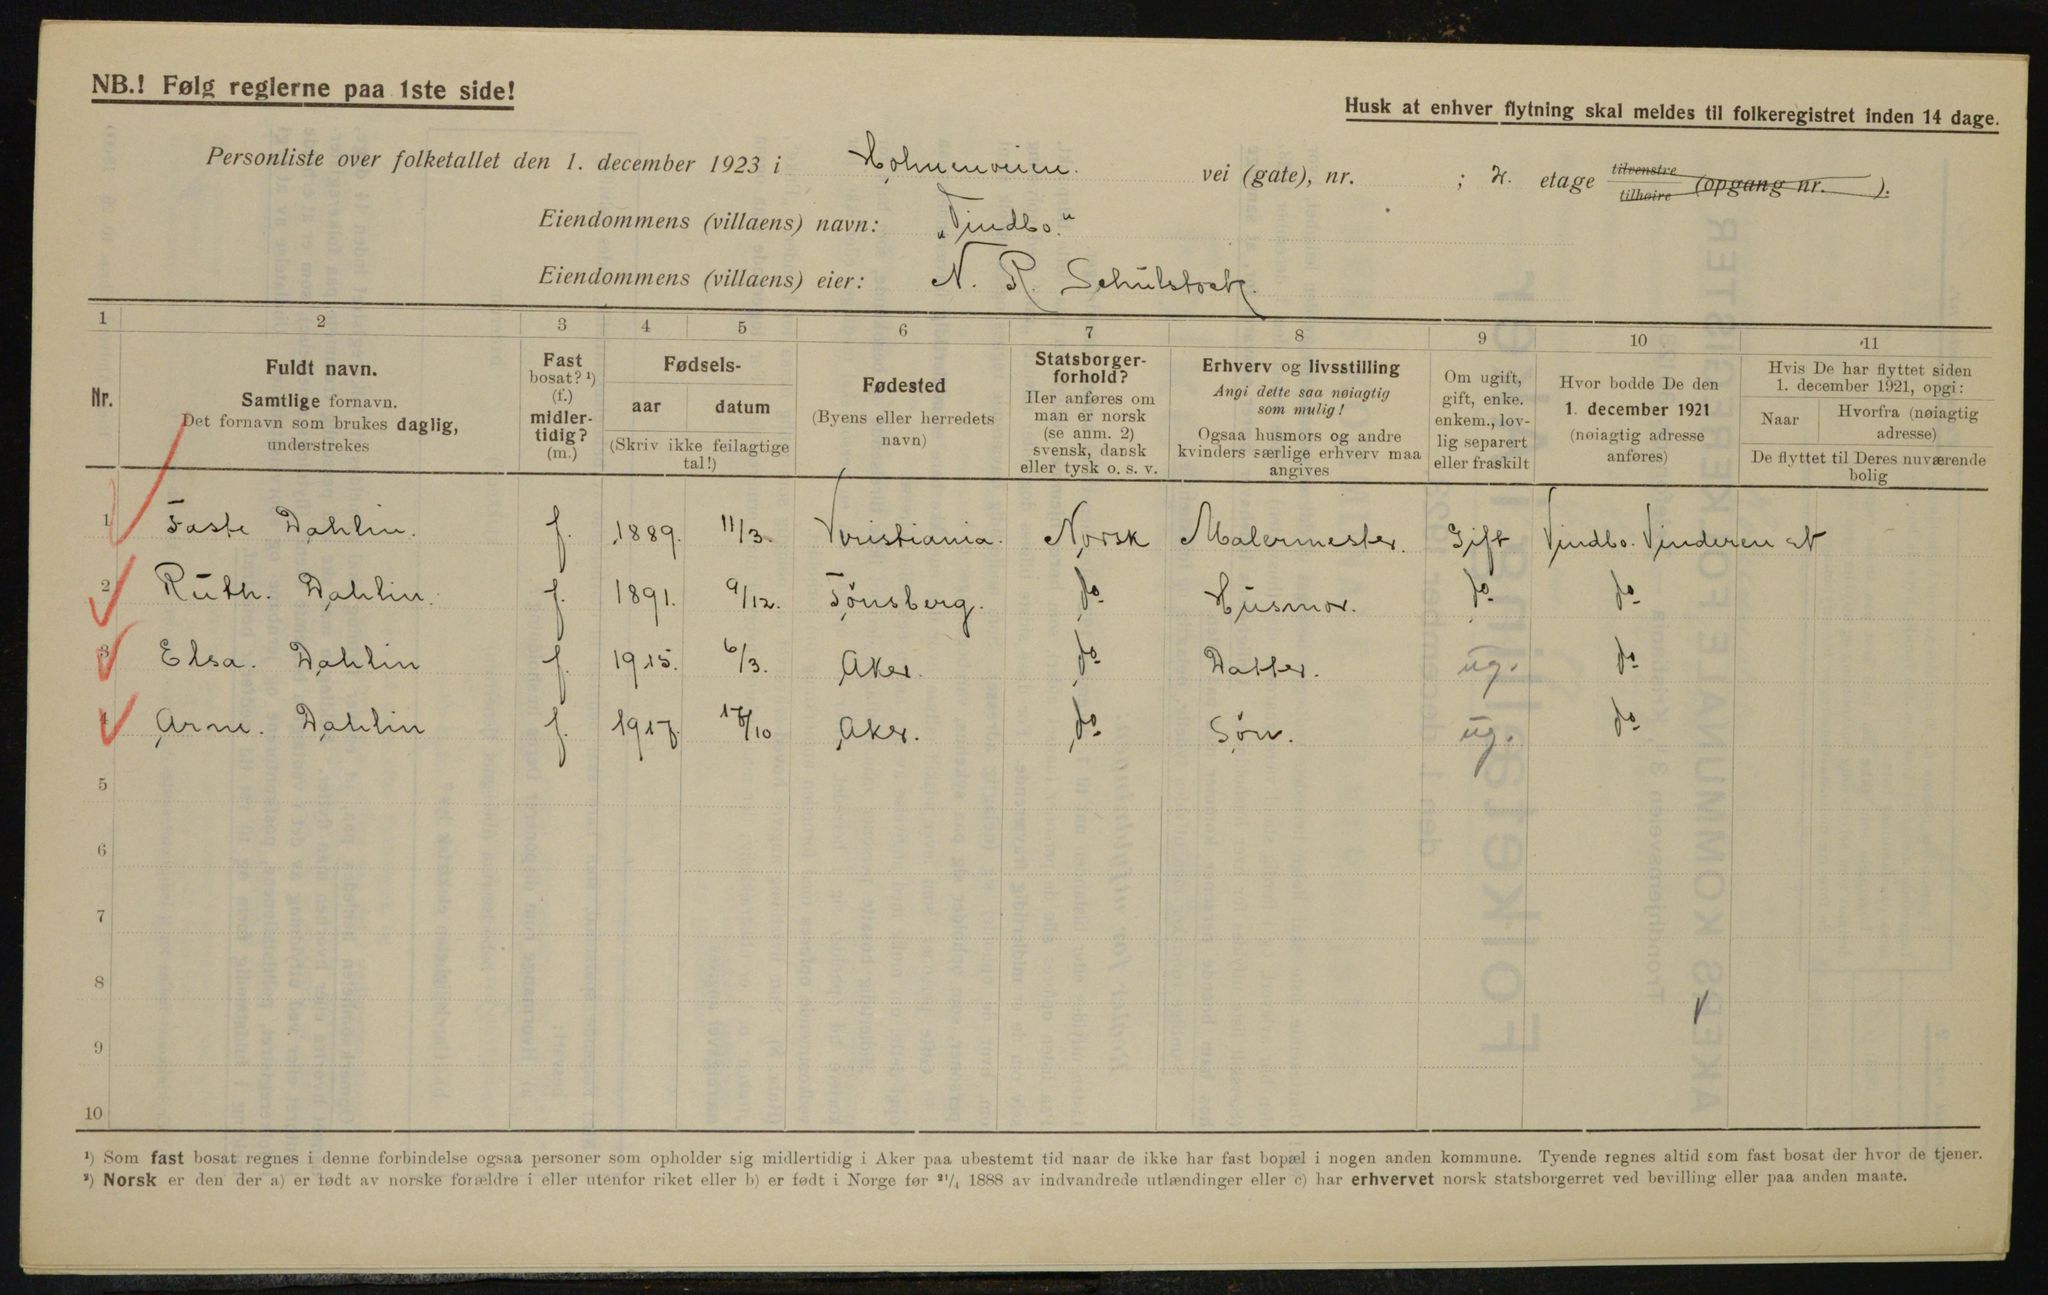 NB.! Følg reglerne paa 1ste side!
Husk at enhver flytning skal meldes til folkeregistret inden 14 dage.
Personliste over folketallet den 1. december 1923 i Holmenveien. vei (gate), nr. ; 2. etage tilvenstre tilhøire (opgang nr. ).
Eiendommens (villaens) navn: „Vindbo."
Eiendommens (villaens) eier: N. R. Schulstock.
1 2 3 4 5 6 7 8 9 10 11
Nr.
Fuldt navn.
Samtlige fornavn.
Det fornavn som brukes daglig,
understrekes
Fast
bosat? ¹)
(f.)
midler-
tidig?
(m.)
Fødsels-
aar datum
(Skriv ikke feilagtige
tal!)
Fødested
(Byens eller herredets
navn)
Statsborger-
forhold?
Her anføres om
man er norsk
(se anm. 2)
svensk, dansk
eller tysk o. s. v.
Erhverv og livsstilling
Angi dette saa nøiagtig
som mulig!
Ogsaa husmors og andre
kvinders særlige erhverv maa
angives
Om ugift,
gift, enke.
enkem., lov-
lig separert
eller fraskilt
Hvor bodde De den
1. december 1921
(nøiagtig adresse
anføres)
Hvis De har flyttet siden
1. december 1921, opgi:
Naar Hvorfra (nøiagtig
adresse)
De flyttet til Deres nuværende
bolig
1 Faste Dahlin. f. 1889. 11/3. Kristiania. Norsk Malermester. Gift Vindbo. Vinderen st
2 Ruth. Dahlin. f. 1891. 9/12. Tønsberg. do Husmor. do do
3 Elsa. Dahlin f. 1915. 6/3. Aker. do Datter. ug. do
4 Arne. Dahlin f. 1917. /10 Aker. do Søn. ug. do
5
6
7
8
9
10
¹) Som fast bosat regnes i denne forbindelse ogsaa personer som opholder sig midlertidig i Aker paa ubestemt tid naar de ikke har fast bopæl i nogen anden kommune. Tyende regnes altid som fast bosat der hvor de tjener.
²) Norsk er den der a) er født av norske forældre i eller utenfor riket eller b) er født i Norge før ²¹/₄ 1888 av indvandrede utlændinger eller c) har erhvervet norsk statsborgerret ved bevilling eller paa anden maate.